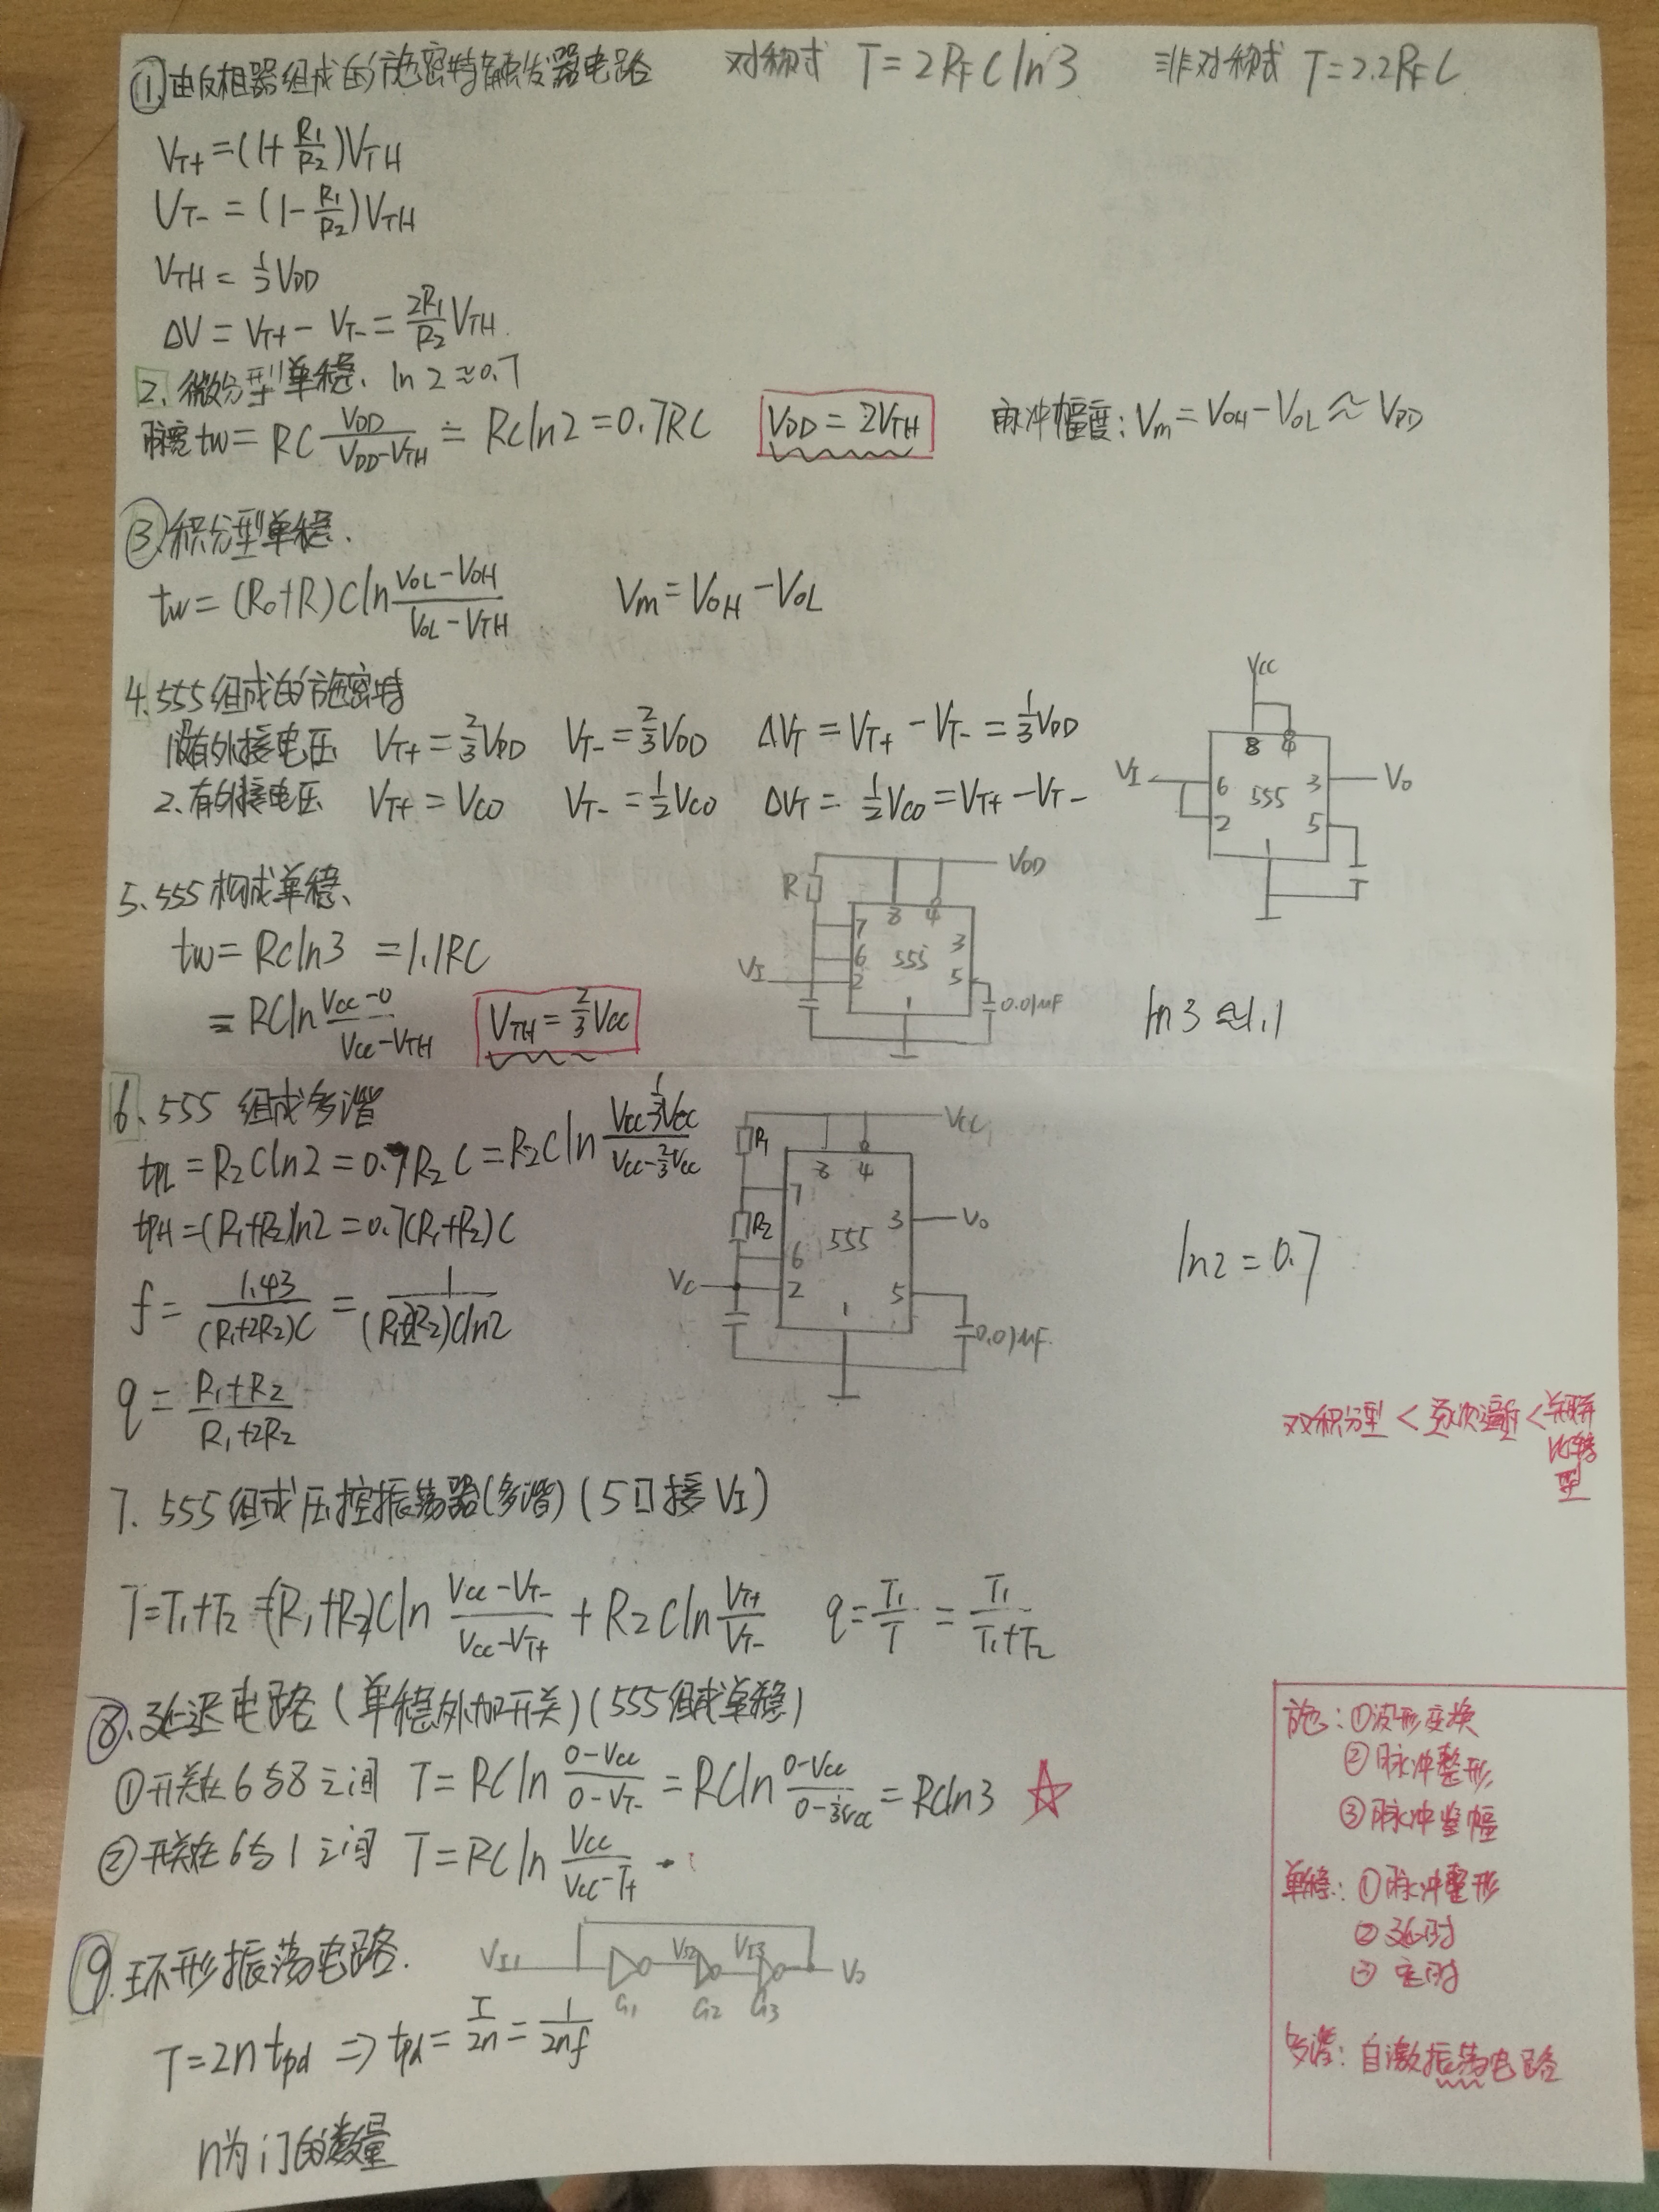 ①由反相器组成的施密特触发器电路 对称式 T=2RFCln3 非对称式 T=2.2RFC
VT+=(1+R1/R2)VTH
VT-=(1-R1/R2)VTH
VTH=1/2VDD
ΔV=VT+-VT-=2R1/R2VTH.
2.微分型单稳、ln2≈0.7
脉宽tw=RC VDD/(VDD-VTH)=RCln2=0.7RC VDD=2VTH 脉冲幅度:Vm=VOH-VOL≈VDD
③积分型单稳.
tw=(Ro+R)Cln(VOL-VOH)/(VOL-VTH) Vm=VOH-VOL
4.555组成的施密特
1没有外接电压 VT+=2/3VDD VT-=2/3VDD ΔVT=VT+-VT-=1/3VDD
2、有外接电压 VT+=VCO VT-=1/2VCO ΔVT=1/2VCO=VT+-VT-
VCC
8 4
VI 6 555 3 Vo
2 5
1
5、555构成单稳、
tw=RCln3=1.1RC
=RCln(VCC-0)/(VCC-VTH) VTH=2/3VCC
VDD
R
8 4
7 3
6 555
VI 2 5
1 0.01μF
ln3≈1.1
6、555组成多谐
tPL=R2Cln2=0.7R2C=R2Cln(VCC-1/3VCC)/(VCC-2/3VCC)
tPH=(R1+R2)ln2=0.7(R1+R2)C
f=1.43/(R1+2R2)C=1/(R1+2R2)Cln2
q=(R1+R2)/(R1+2R2)
VCC
R1
8 4
7
R2 555 3 Vo
6
VC 2 5
1 0.01μF
ln2=0.7
双积分型<逐次逼近<并联
比较
型
7.555组成压控振荡器(多谐)(5口接VI)
T=T1+T2=(R1+R2)Cln(VCC-VT-)/(VCC-VT+)+R2Cln VT+/VT- q=T1/T=T1/(T1+T2)
⑧、延迟电路(单稳外加开关)(555组成单稳)
①开关在6与8之间 T=RCln(0-VCC)/(0-VT-)=RCln(0-VCC)/(0-1/3VCC)=RCln3 ☆
②开关在6与1之间 T=RCln VCC/(VCC-T+)
⑨.环形振荡电路.
VI1 VI2 VI3 Vo
G1 G2 G3
T=2ntpd⇒tpd=T/2n=1/2nf
n为门的数量
施:①波形变换
②脉冲整形
③脉冲鉴幅
单稳:①脉冲整形
②延时
③定时
多谐:自激振荡电路